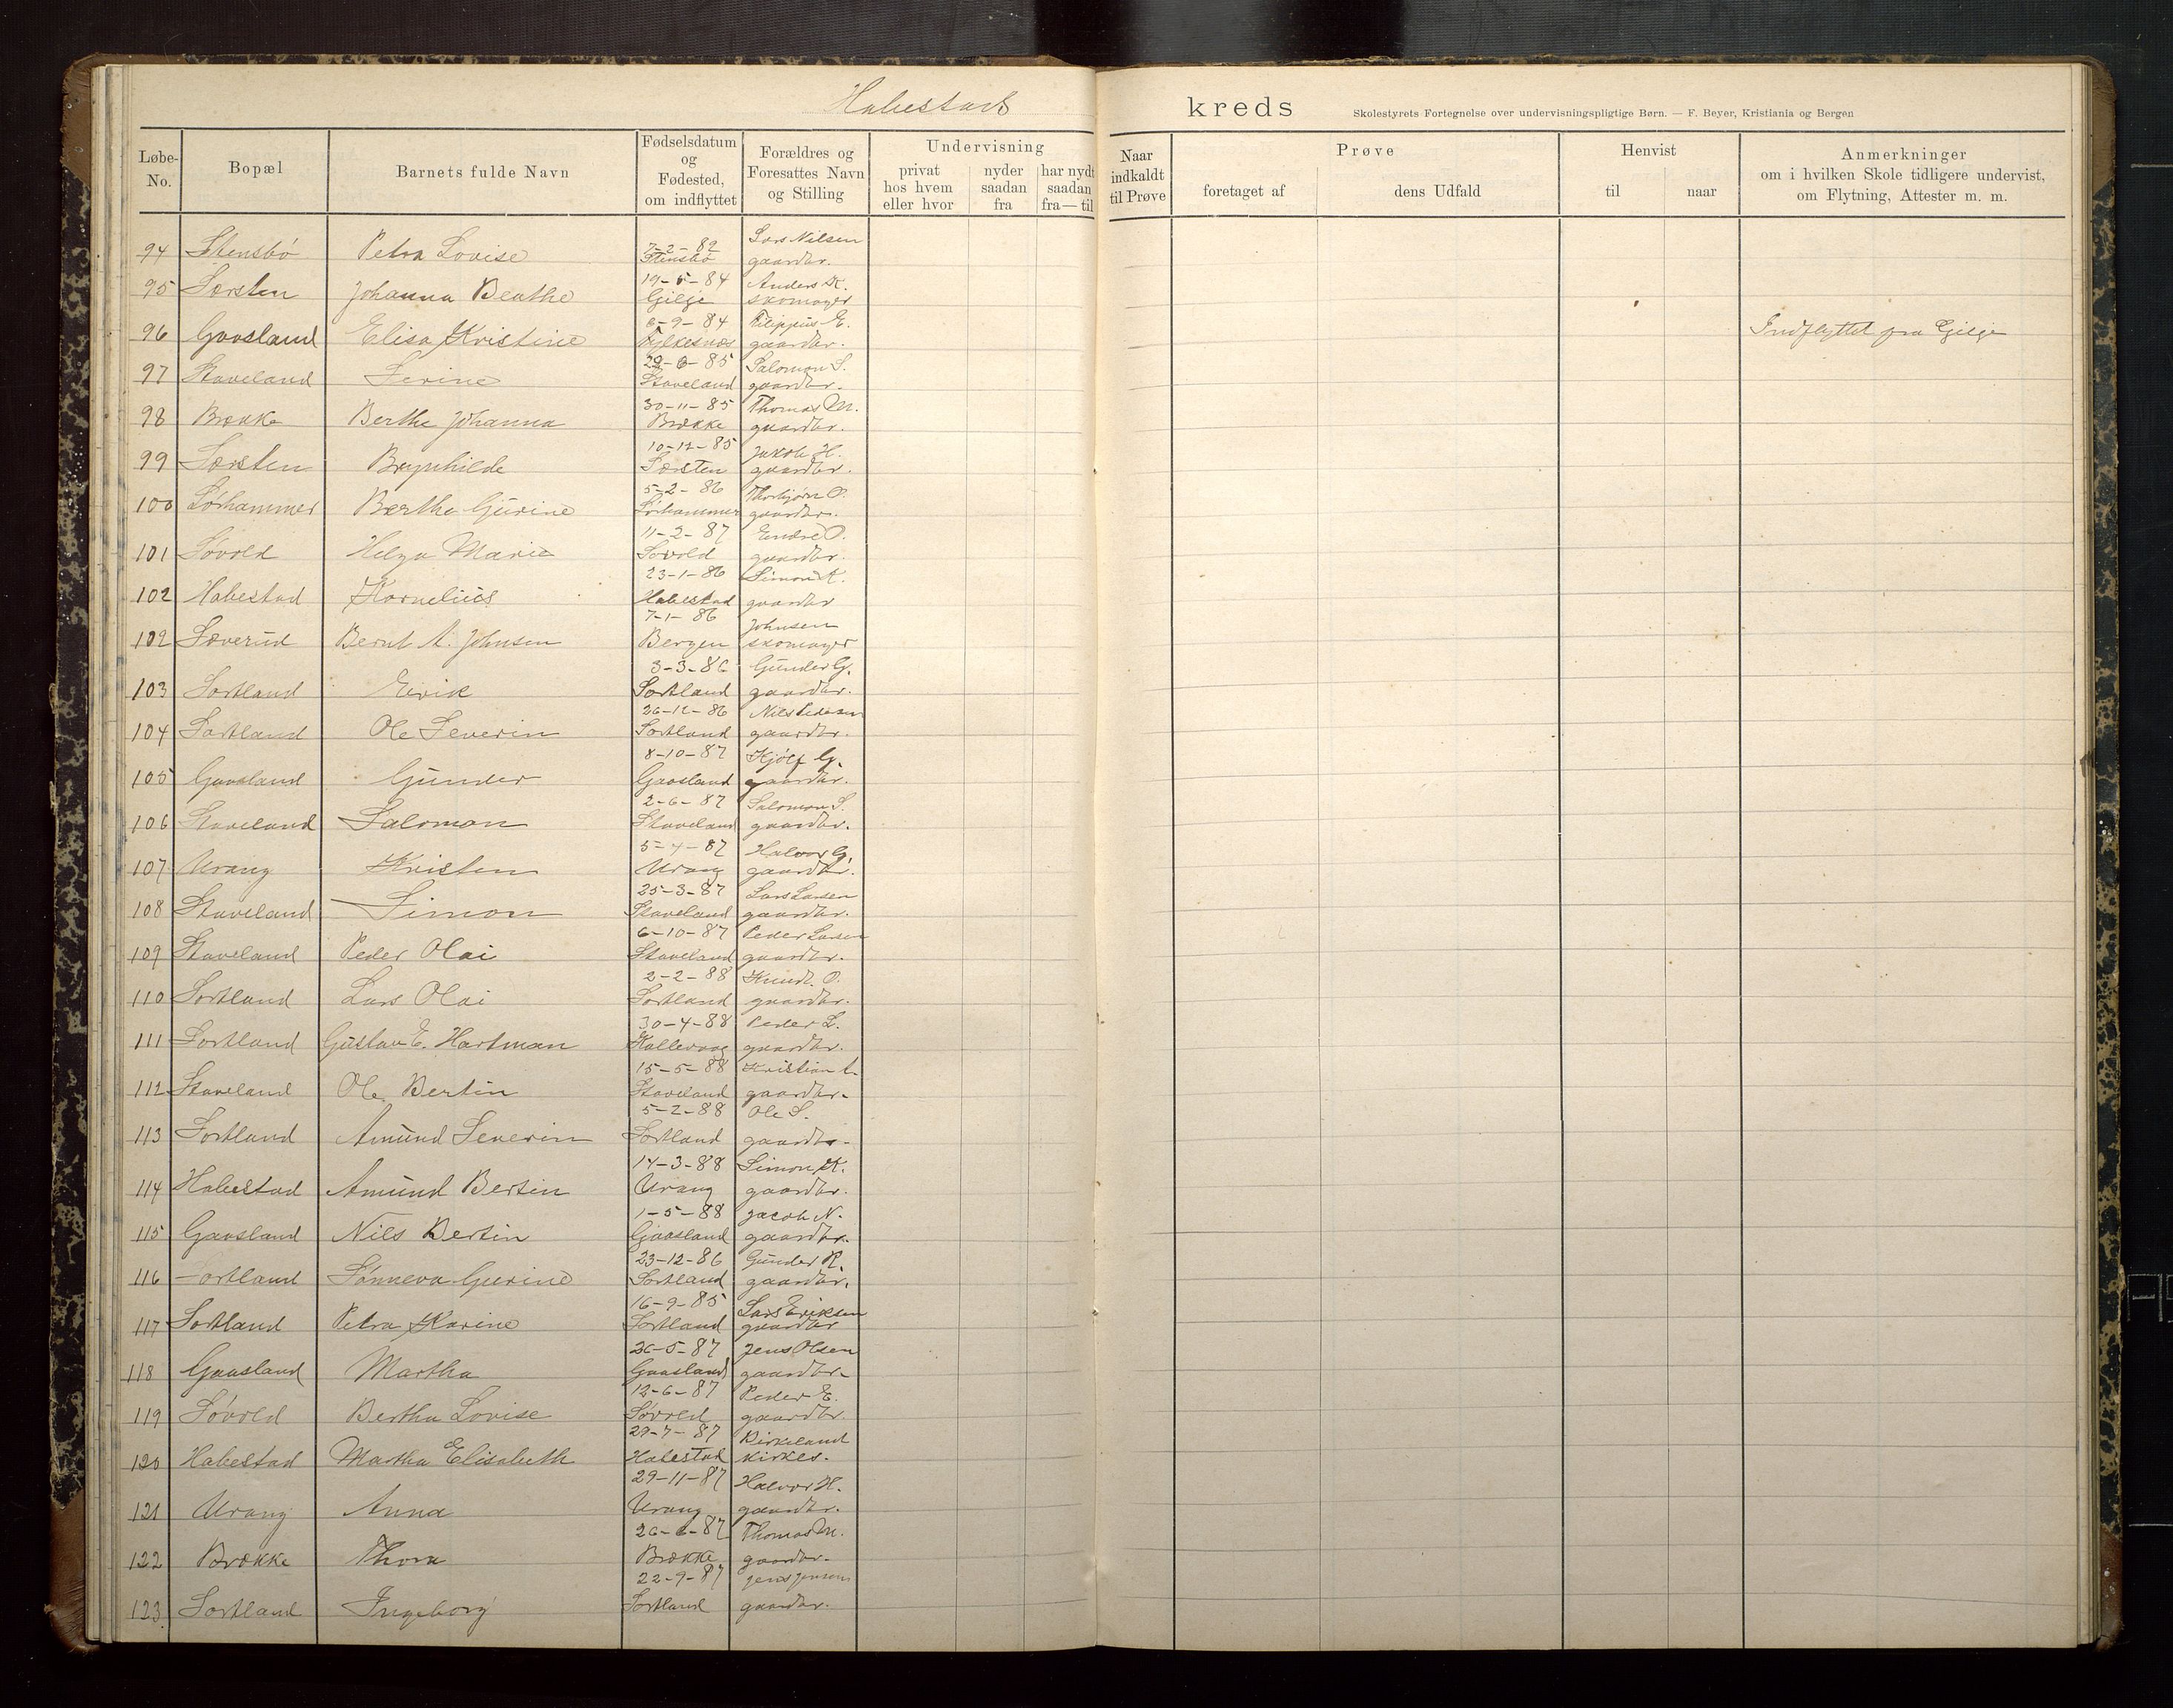 Habestad kreds
Skolestyrets Fortegnelse over undervisningspligtige Børn. — F. Beyer, Kristiania og Bergen
Løbe-No. Bopæl Barnets fulde Navn Fødselsdatum og Fødested, om indflyttet Forældres og Foresattes Navn og Stilling Undervisning privat hos hvem eller hvor nyder saadan fra har nydt saadan fra — til Naar indkaldt til Prøve Prøve foretaget af dens Udfald Henvist til naar Anmerkninger om i hvilken Skole tidligere undervist, om Flytning, Attester m. m.
94 Stensbø Petra Lovise 7-2-82 Stensbø Lars Nilsen gaardbr.
95 Sørsten Johanna Beathe 19-5-84 Gilje Anders K. skomager
96 Gaasland Elisa Kristine 6-9-84 Fylkesnæs Filippus E. gaardbr. Indflyttet fra Gilje
97 Staveland Serine 29-6-85 Staveland Salomon S. gaardbr.
98 Brække Berthe Johanna 30-11-85 Brække Thomas M. gaardbr.
99 Sørsten Brynhilde 10-12-85 Sørsten Jakob H. gaardbr.
100 Sørhammer Berthe Gurine 5-2-86 Sørhammer Thorbjørn O. gaardbr.
101 Søvold Helga Marie 11-2-87 Søvold Endre O. gaardbr.
102 Habestad Kornelius 23-1-86 Habestad Simon K. gaardbr
102 Sæverud Bernt A. Johnsen 7-1-86 Bergen Johnsen skomager
103 Sortland Eirik 3-3-86 Sortland Gunder G. gaardbr.
104 Sortland Ole Severin 26-12-86 Sortland Nils Pedersen gaardbr.
105 Gaasland Gunder 8-10-87 Gaasland Kjølf G. gaardbr.
106 Staveland Salomon 2-6-87 Staveland Salomon S. gaardbr.
107 Urang Kristen 5-4-87 Urang Halvor G. gaardbr.
108 Staveland Simon 25-3-87 Staveland Lars Larsen gaardbr.
109 Staveland Peder Olai 6-10-87 Staveland Peder Larsen gaardbr.
110 Sortland Lars Olai 2-2-88 Sortland Knud O. gaardbr.
111 Sortland Gustav E. Hartman 30-4-88 Kallevaag Peder L. gaardbr.
112 Staveland Ole Bertin 15-5-88 Staveland Kristian gaardbr.
113 Sortland Amund Severin 5-2-88 Sortland Ole S. gaardbr.
114 Habestad Amund Bertin 14-3-88 Urang Simon K. gaardbr.
115 Gaasland Nils Bertin 1-5-88 Gaasland Jacob N. gaardbr.
116 Sortland Sønneva Gurine 23-12-86 Sortland Gunder R. gaardbr.
117 Sortland Petra Karine 16-9-85 Sortland Lars Eriksen gaardbr
118 Gaasland Martha 26-5-87 Gaasland Jens Olsen gaardbr.
119 Søvold Bertha Lovise 12-6-87 Søvold Peder E. gaardbr.
120 Habestad Martha Elisabeth 29-7-87 Habestad Birkeland kirkes.
121 Urang Anna 29-11-87 Urang Halvor H. gaardbr.
122 Brække Thora 26-6-87 Brække Thomas M. gaardbr.
123 Sortland Ingeborg 22-9-87 Sortland Jens Jensen gaardbr.